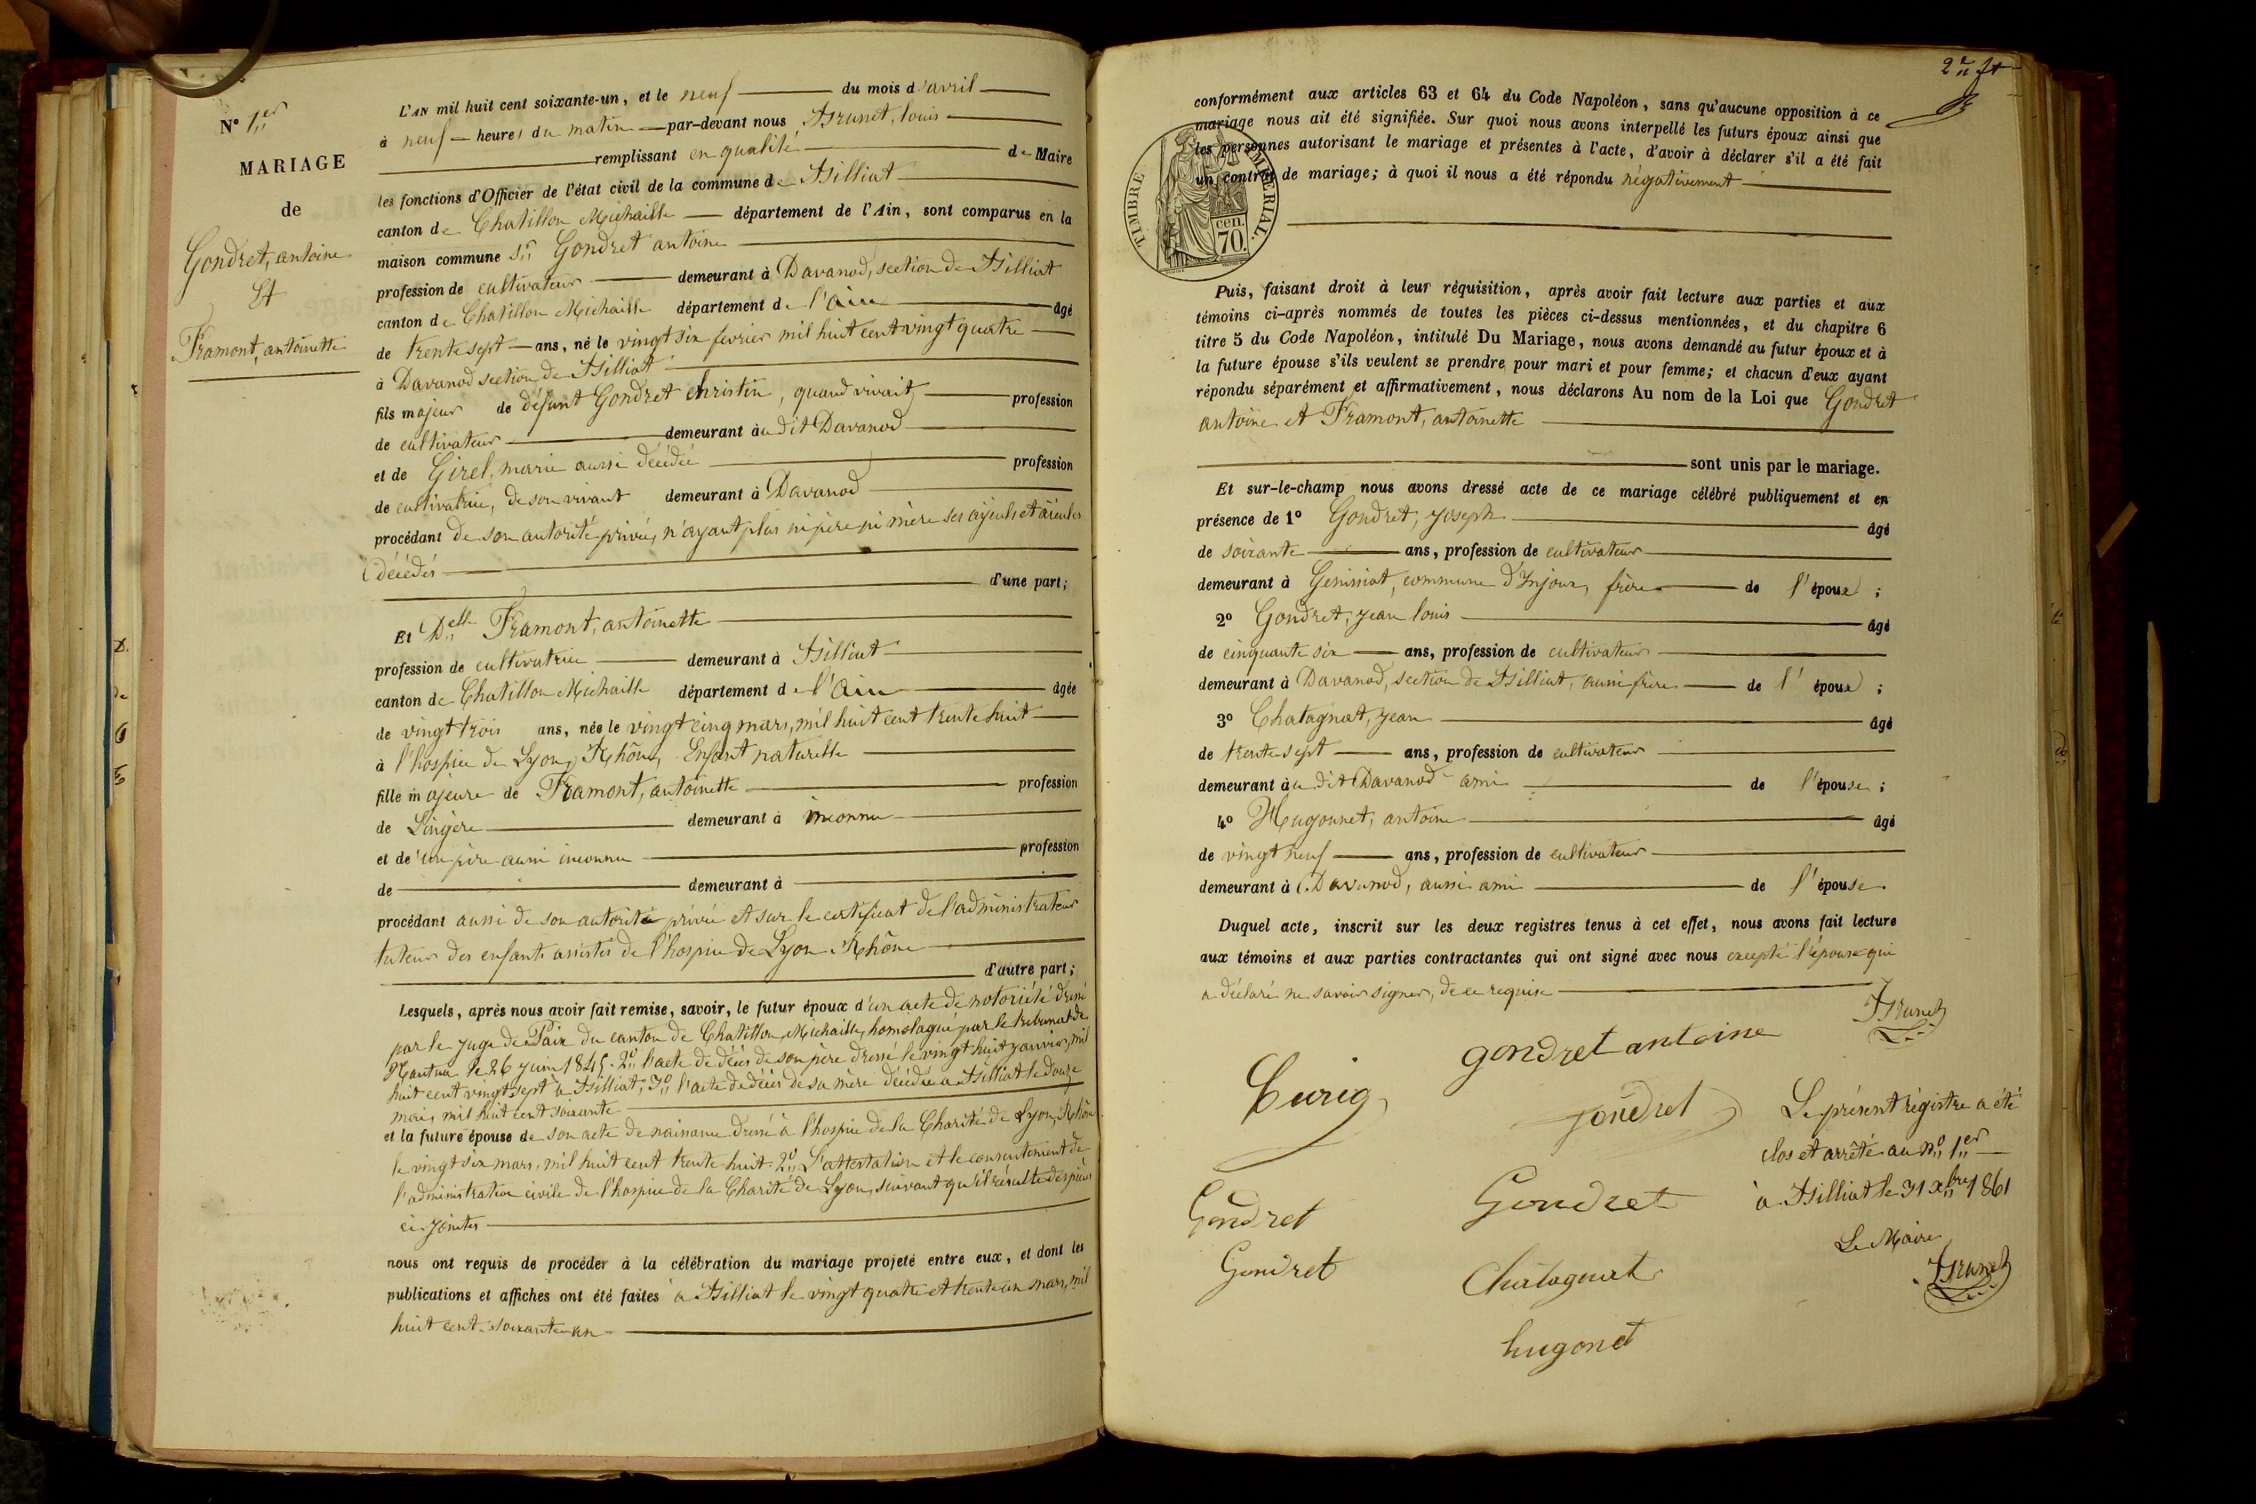 N° 1er
MARIAGE
de
Gondret, antoine
Et
Framont, antoinette
L'AN mil huit cent soixante-un, et le neuf du mois d'avril
à neuf heures du matin par-devant nous Brunet, louis
remplissant en qualité de Maire
les fonctions d'Officier de l'état civil de la commune de Billiat
canton de Chatillon Michaille département de l'Ain, sont comparus en la
maison commune Sr Gondret antoine
profession de cultivateur demeurant à Davanod, section de Billiat
canton de Chatillon Michaille département de l'ain âgé
de trente sept ans, né le vingt six fevrier mil huit cent vingt quatre
à Davanod section de Billiat
fils majeur de défunt Gondret christin, quand vivait profession
de cultivateur demeurant au dit Davanod
et de Girel, marie aussi décédée profession
de cultivatrice, de son vivant demeurant à Davanod
procédant de son autorité privée, n'ayant plus ni père ni mère ses ayeuls et aieules
décédés
d'une part;
Et Delle Framont, antoinette
profession de cultivatrice demeurant à Billiat
canton de Chatillon Michaille département de l'ain âgée
de vingt trois ans, née le vingt cinq mars, mil huit cent trente huit
à l'hospice de Lyon, Rhône, Enfant naturelle
fille majeure de Framont, antoinette profession
de Lingère demeurant à inconnu
et de un père aussi inconnu profession
de demeurant à
procédant aussi de son autorité privée et sur le certificat de l'administrateur
tuteur des enfants assistés de l'hospice de Lyon Rhône
d'autre part;
Lesquels, après nous avoir fait remise, savoir, le futur époux d'un acte de notoriété dressé
par le juge de Paix du canton de Chatillon Michaille, homologué par le tribunal de
Nantua le 26 juin 1845. 2° l'acte de décès de son père dressé le vingt huit janvier, mil
huit cent vingt sept à Billiat; 3° l'acte de décès de sa mère décédée à Billiat le douze
mai, mil huit cent soixante
et la future épouse de son acte de naissance dressé à l'hospice de la Charité de Lyon, Rhône
le vingt six mars, mil huit cent trente huit. 2° L'attestation et le consentement de
l'administration civile de l'hospice de la Charité de Lyon, suivant qu'il résulte des pièces
ci-jointes
nous ont requis de procéder à la célébration du mariage projeté entre eux, et dont les
publications et affiches ont été faites à Billiat le vingt quatre et trente un mars, mil
huit cent soixante un
conformément aux articles 63 et 64 du Code Napoléon, sans qu'aucune opposition à ce
mariage nous ait été signifiée. Sur quoi nous avons interpellé les futurs époux ainsi que
les personnes autorisant le mariage et présentes à l'acte, d'avoir à déclarer s'il a été fait
un contrat de mariage; à quoi il nous a été répondu négativement
TIMBRE IMPÉRIAL.
cen.
70.
Puis, faisant droit à leur réquisition, après avoir fait lecture aux parties et aux
témoins ci-après nommés de toutes les pièces ci-dessus mentionnées, et du chapitre 6
titre 5 du Code Napoléon, intitulé Du Mariage, nous avons demandé au futur époux et à
la future épouse s'ils veulent se prendre pour mari et pour femme; et chacun d'eux ayant
répondu séparément et affirmativement, nous déclarons Au nom de la Loi que Gondret
antoine et Framont, antoinette
sont unis par le mariage.
Et sur-le-champ nous avons dressé acte de ce mariage célébré publiquement et en
présence de 1° Gondret, joseph âgé
de soixante ans, profession de cultivateur
demeurant à Genissiat, commune d'Injoux, frère de l'époux;
2° Gondret, jean louis âgé
de cinquante six ans, profession de cultivateur
demeurant à Davanod, section de Billiat, aussi frère de l'époux;
3° Chatagnat, jean âgé
de trente sept ans, profession de cultivateur
demeurant au dit Davanod ami de l'épouse;
4° Hugonnet, antoine âgé
de vingt neuf ans, profession de cultivateur
demeurant à Davanod, aussi ami de l'épouse.
Duquel acte, inscrit sur les deux registres tenus à cet effet, nous avons fait lecture
aux témoins et aux parties contractantes qui ont signé avec nous excepté l'épouse qui
a déclaré ne savoir signer, de ce requise
Brunet
gondret antoine
gondret
Gondret
Gondret
Gondret
Chatagnat
hugonet
Le présent régistre a été
clos et arrêté au n° 1er
à Billiat le 31 Xbre 1861
Le Maire
Brunet